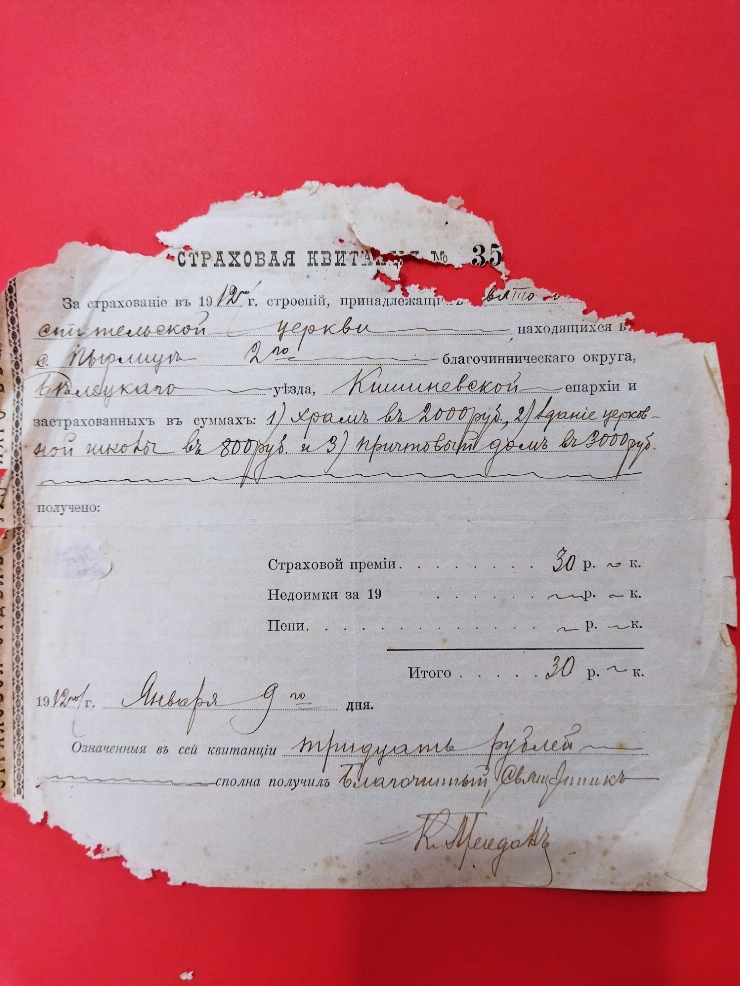 СТРАХОВАЯ КВИТАНЦІЯ № 35
За страхованіе въ 1912го/г. строеній, принадлежащихъ вято
стительской церкви находящихся въ
с. Пырлицъ 2го благочинническаго округа,
Бѣлецкаго уѣзда, Кишиневской епархіи и
застрахованныхъ въ суммахъ: 1) храмъ въ 2000 руб., 2) зданіе церков-
ной школы въ 800 руб. и 3) причтовый домъ въ 3000 руб.
получено:
Страховой преміи . . . . . . . . . 30 р. к.
Недоимки за 19 . . . . . р. к.
Пени . . . . . . . . . . . . . р. к.
Итого . . . . . . 30 р. к.
1912го/г. Января 9го дня.
Означенныя въ сей квитанціи тридцать рублей
сполна получилъ Благочинный Священникъ
К.